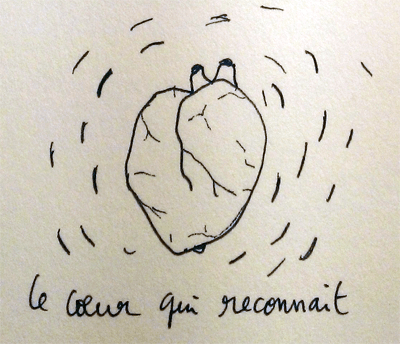 le cœur qui reconnait